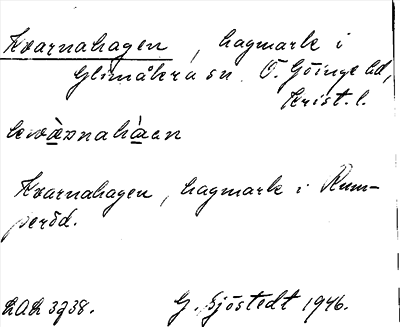 Kvarnahagen, hagmark i
Glimåkra sn Ö. Göinge hd,
Krist. l.
kwæ̀ṇnahàan
Kvarnahagen, hagmark i Rum-
peröd.
RAÄ 3938.      G. Sjöstedt 1946.